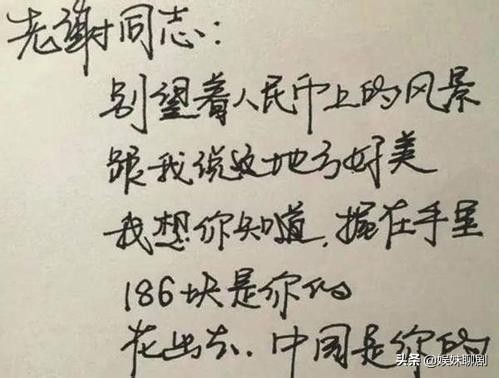 老谢同志：
别望着人民币上的风景
跟我说这地方好美
我想你知道，握在手里
186块是你的
花出去、中国是你的
头条 @娱妹聊剧